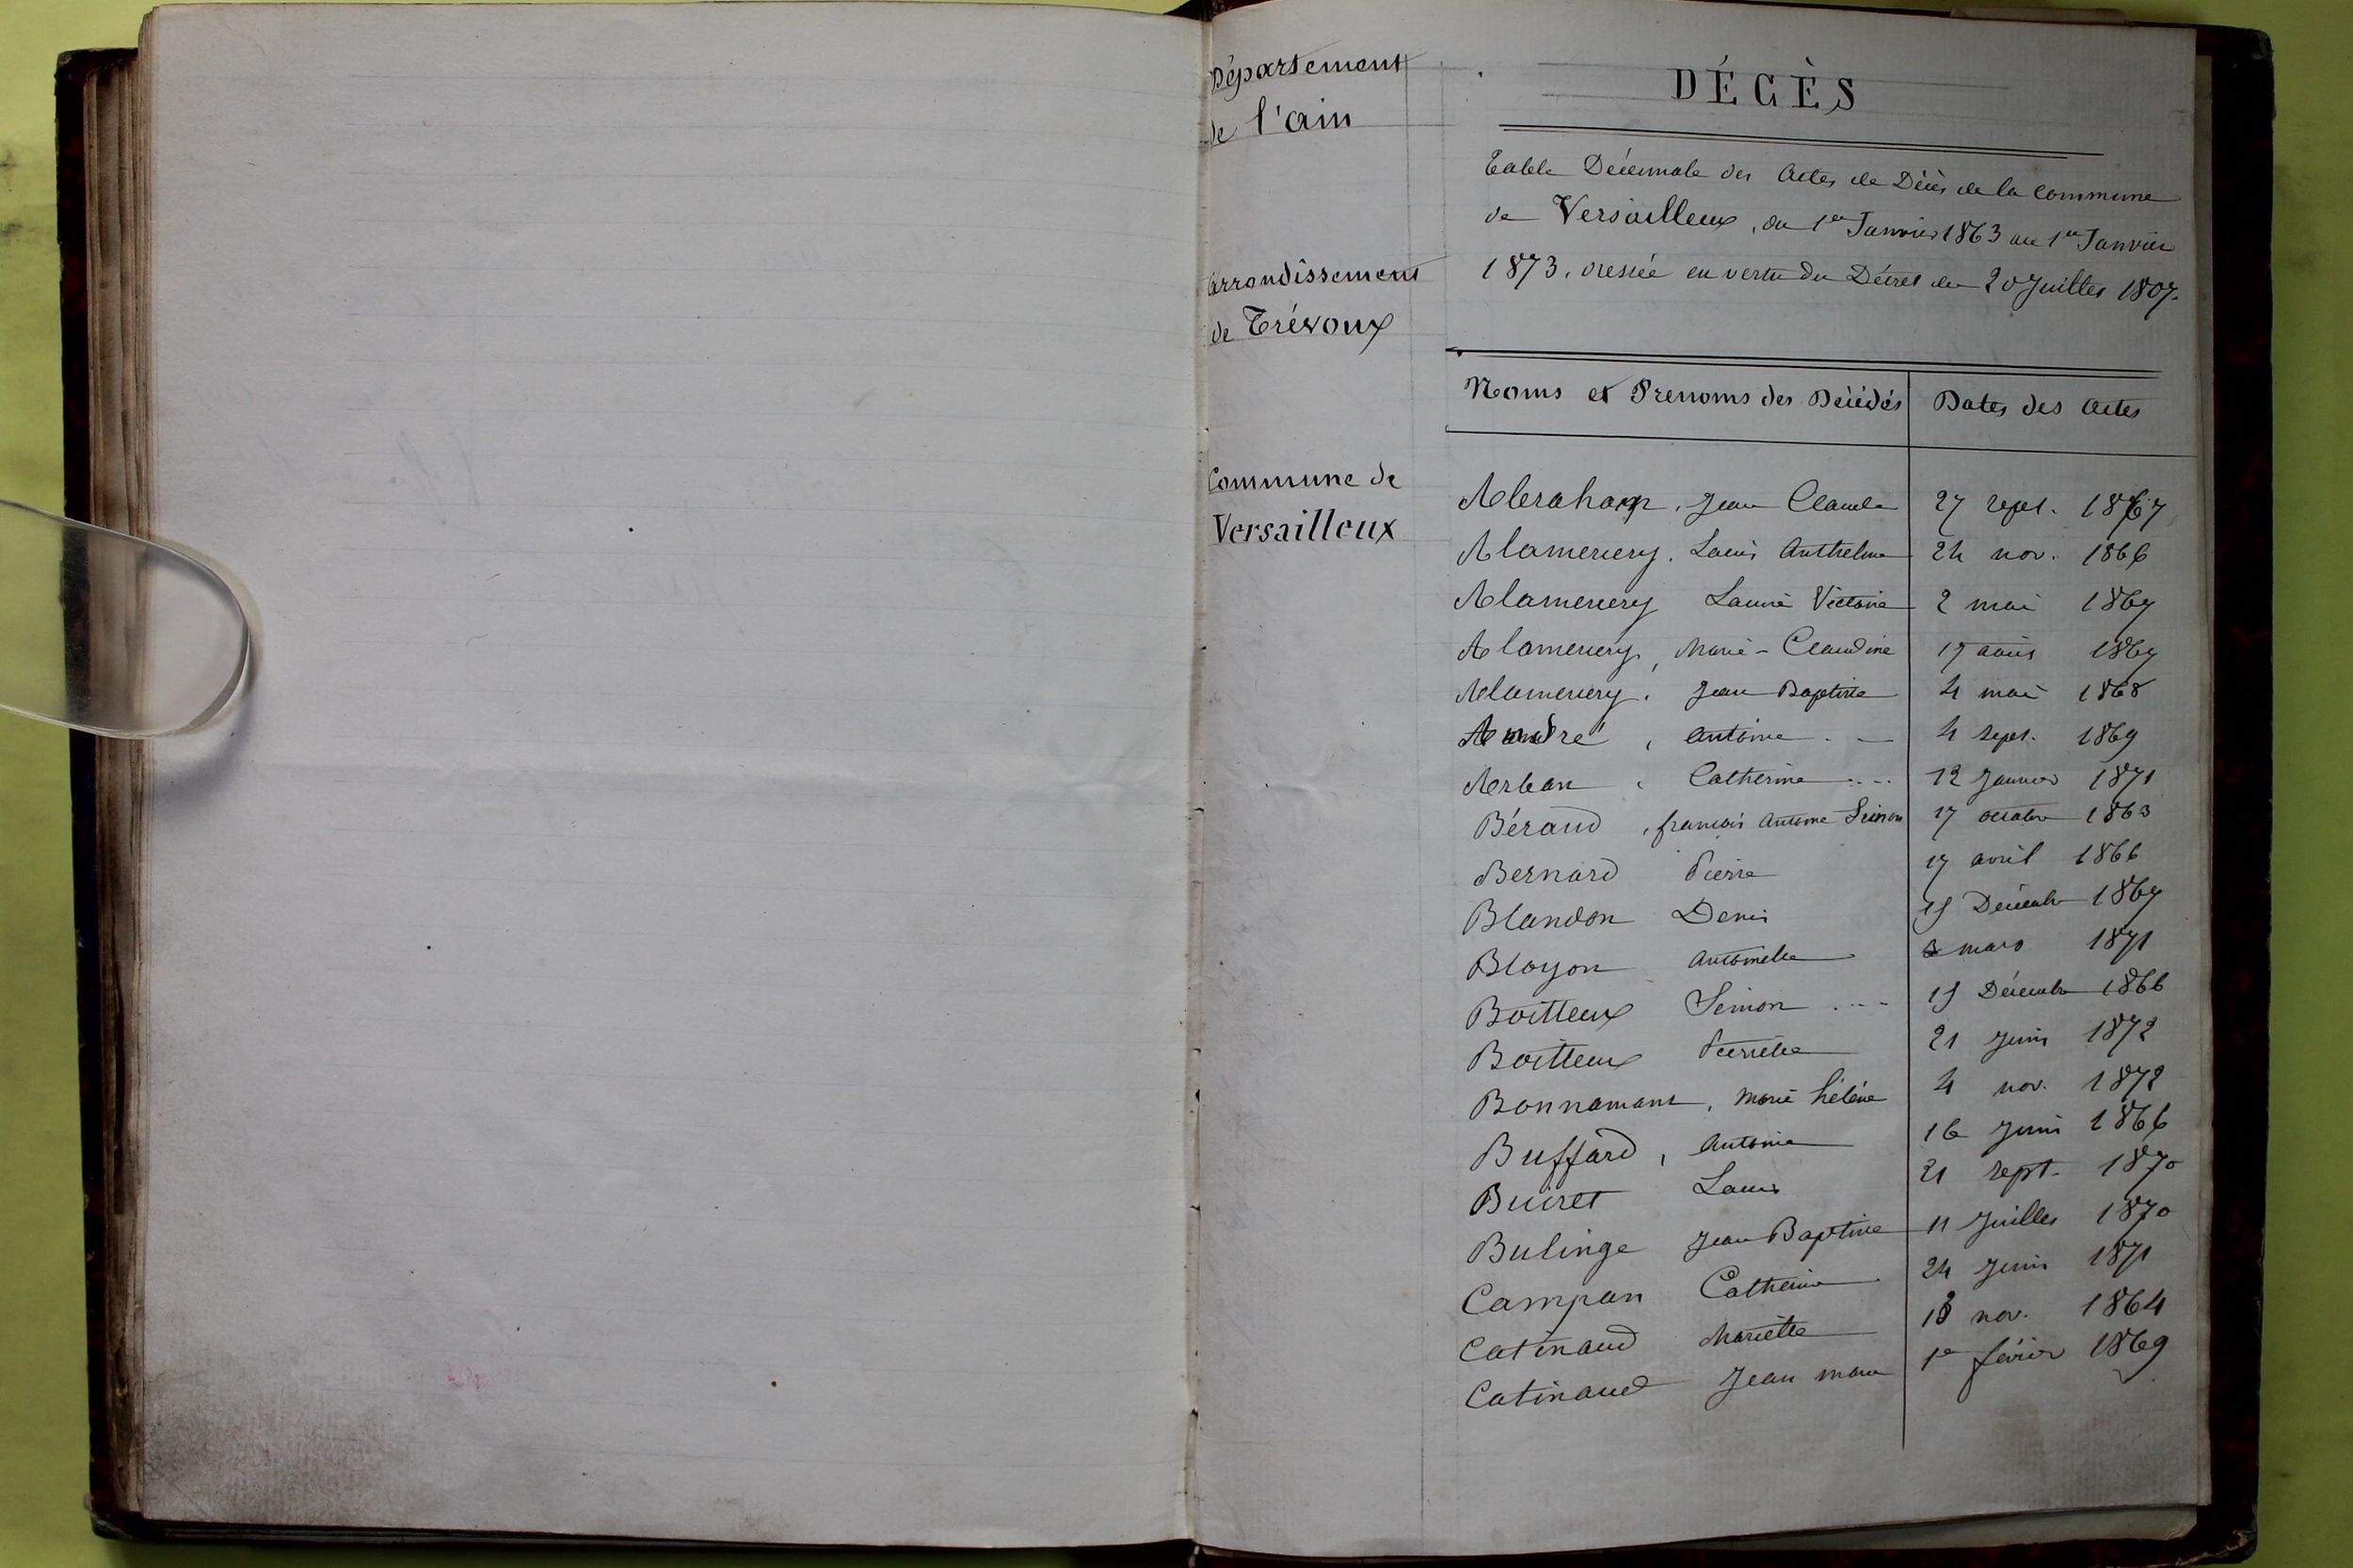 Département
de l'ain
Arrondissement
de Trévoux
Commune de
Versailleux
DÉCÈS
Table Décennale des Actes de Décès de la commune
de Versailleux, du 1er Janvier 1863 au 1er Janvier
1873, dressée en vertu du Décret du 20 Juillet 1807.
Noms et Prenoms des Décédés Dates des actes
Abraham, Jean Claude 27 sept. 1867
Alamercery, Louis Anthelme 24 nov. 1866
Alamercery Laurie Victorie 2 mai 1867
Alamercery, Marie-Claudine 17 août 1867
Alamercery, Jean Baptiste 4 mai 1868
André, Antoine 4 sept. 1869
Arban, Catherine 12 Janvier 1871
Béraud, françois Antoine Simon 17 octobre 1863
Bernard Pierre 17 avril 1866
Blandon Denis 15 Décembre 1867
Bloyon Antoinette mars 1871
Boitteux Simon 15 Décembre 1866
Boitteux Pierrette 21 Juin 1872
Bonnamant, Marie hélène 4 nov. 1872
Buffard, Antoine 16 Juin 1866
Buiret Louis 21 sept. 1870
Bulinge Jean Baptiste 11 Juillet 1870
Campan Catherine 24 Juin 1871
Catinaud Mariette 18 nov. 1864
Catinaud Jean marie 1er février 1869